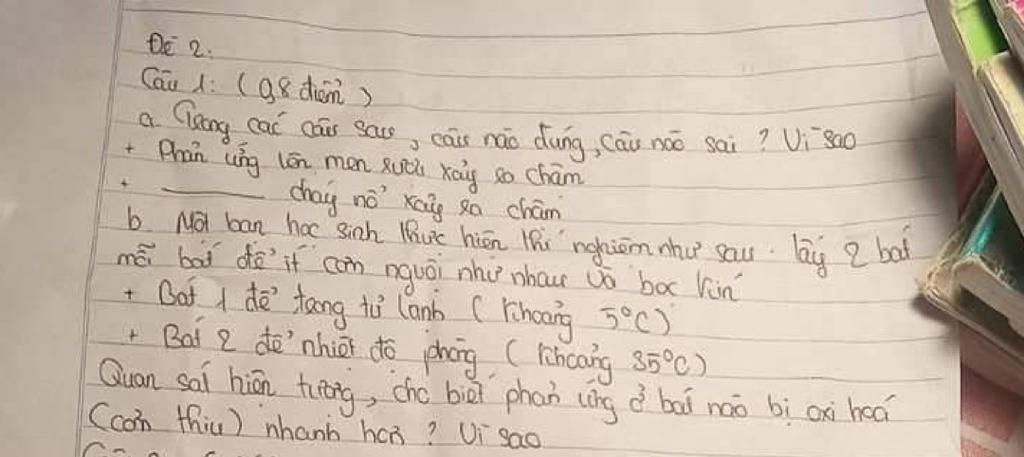 Đề 2:
Câu 1: (0,8 điểm)
a. Trong các câu sau, câu nào đúng, câu nào sai ? Vì sao
+ Phản ứng lên men rượu xảy ra chậm
+ ______ cháy nổ xảy ra chậm
b. Một bạn học sinh thực hiện thí nghiệm như sau. lấy 2 bát
mỗi bát để ít cơm nguội như nhau và bọc kín
+ Bát 1 để trong tủ lạnh ( khoảng 5°C)
+ Bát 2 để nhiệt độ phòng ( khoảng 35°C)
Quan sát hiện tượng, cho biết phản ứng ở bát nào bị oxi hoá
(cơm thiu) nhanh hơn ? Vì sao